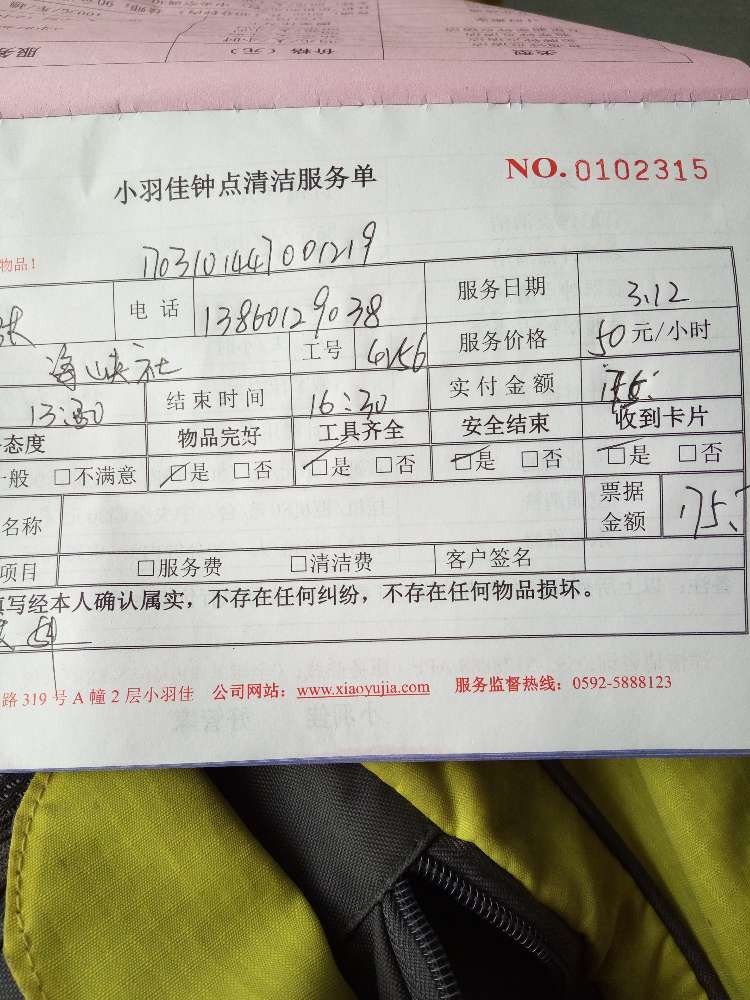 类型
价格（元）
服务
小羽佳钟点清洁服务单
NO. 0102315
物品1
1703101447001219
电话 13860129038 服务日期 3.12
海峡 社 工号 4156 服务价格 50元/小时
13:30 结束时间 16:30 实付金额
态度 物品完好 工具齐全 安全结束 收到卡片
一般 □不满意 □是 □否 □是 □否 □是 □否 □是 □否
名称 票据金额 175.
项目 □服务费 □清洁费 客户签名
填写经本人确认属实，不存在任何纠纷，不存在任何物品损坏。
路319号A幢2层小羽佳 公司网站：www.xiaoyujia.com 服务监督热线：0592-5888123